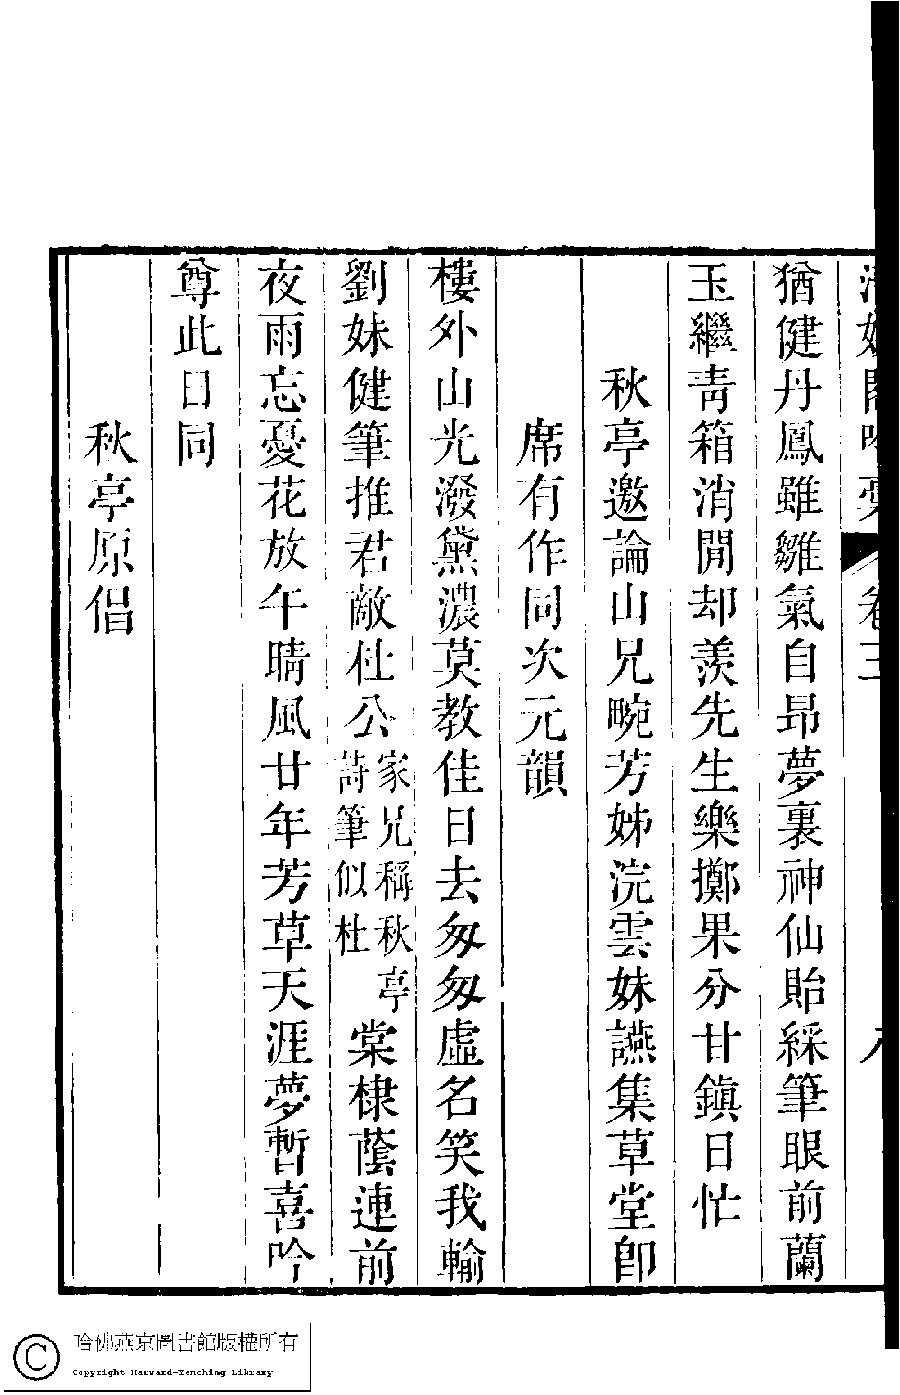 卷三
猶健丹鳳雖雛氣自昂夢裏神仙貽綵筆眼前蘭
玉繼靑箱消閒却羨先生樂擲果分甘鎭日忙
秋亭邀論山兄畹芳姊浣雲妹讌集草堂卽
席有作同次元韻
樓外山光潑黛濃莫教佳日去匆匆虛名笑我輸
劉妹健筆推君敵杜公家兄稱秋亭詩筆似杜棠棣蔭連前
夜雨忘憂花放午晴風廿年芳草天涯夢暫喜吟
尊此日同
秋亭原倡
哈佛燕京圖書館版權所有
Copyright Harvard-Yenching Library